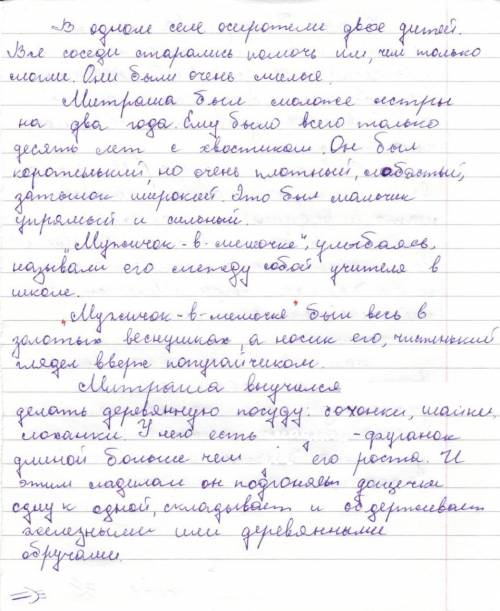 В одном селе осиротели двое дитей.
Все соседи старались помочь им, чем только
могли. Они были очень милые.
Митраша был моложе сестры
на два года. Ему было всего только
десять лет с хвостиком. Он был
коротенький, но очень плотный, лобастый,
затылок широкий. Это был мальчик
упрямый и сильный.
"Мужичок-в-мешочке", улыбаясь,
называли его между собой учителя в
школе.
"Мужичок-в-мешочке" был весь в
золотых веснушках, а носик его, чистенький
глядел вверх попугайчиком.
Митраша выучился
делать деревянную посуду: бочонки, шайки,
лоханки. У него есть -фуганок
длиной больше чем его роста. И
этим ладилом он подгоняет дощечки
одну к одной, складывает и обдерживает
железными или деревянными
обручами.
=>